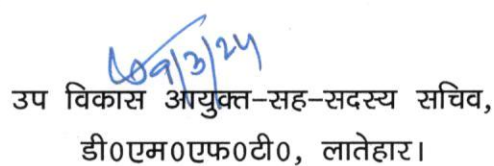 9/3/24
उप विकास आयुक्त-सह-सदस्य सचिव,
डी०एम०एफ०टी०, लातेहार।